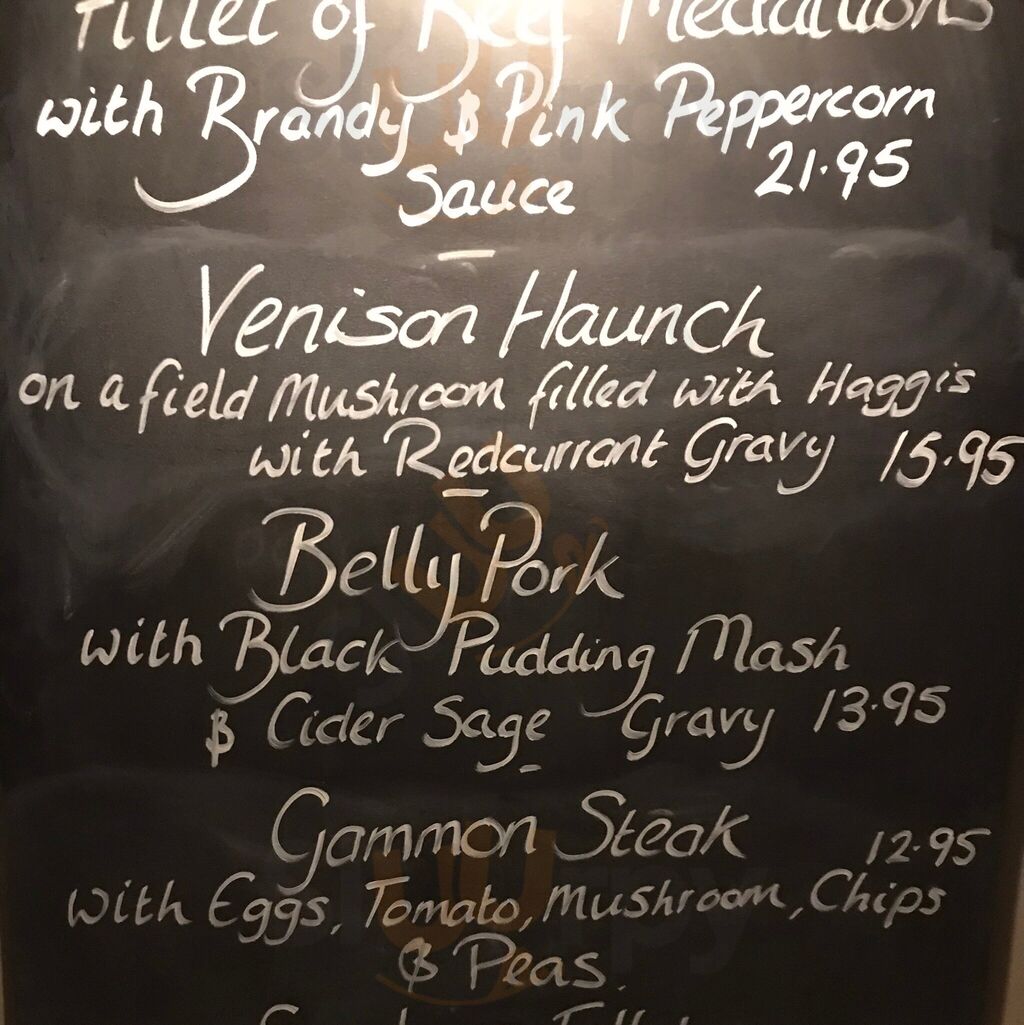 Fillet of Beef Medallions
with Brandy & Pink Peppercorn
Sauce 21.95
Venison Haunch
on a field Mushroom filled with Haggis
with Redcurrant Gravy 15.95
Belly Pork
with Black Pudding Mash
& Cider Sage Gravy 13.95
Gammon Steak 12.95
with Eggs, Tomato, Mushroom, Chips
& Peas.